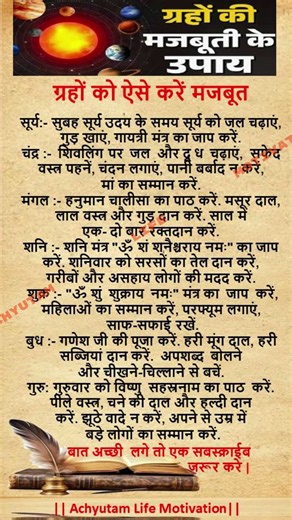 ग्रहों की
मजबूती के
उपाय
ग्रहों को ऐसे करें मजबूत
सूर्य:- सुबह सूर्य उदय के समय सूर्य को जल चढ़ाएं,
गुड़ खाएं, गायत्री मंत्र का जाप करें.
चंद्र :- शिवलिंग पर जल और दू ध चढ़ाएं, सफेद
वस्त्र पहनें, चंदन लगाएं, पानी बर्बाद न करें,
मां का सम्मान करें.
मंगल :- हनुमान चालीसा का पाठ करें. मसूर दाल,
लाल वस्त्र और गुड़ दान करें. साल में
एक- दो बार रक्तदान करें.
शनि :- शनि मंत्र "ॐ शं शनैश्चराय नमः" का जाप
करें. शनिवार को सरसों का तेल दान करें,
गरीबों और असहाय लोगों की मदद करें.
शुक्र :- "ॐ शुं शुक्राय नमः" मंत्र का जाप करें,
महिलाओं का सम्मान करें, परफ्यूम लगाएं,
साफ-सफाई रखें.
बुध :- गणेश जी की पूजा करें. हरी मूंग दाल, हरी
सब्जियां दान करें. अपशब्द बोलने
और चीखने-चिल्लाने से बचें.
गुरु: गुरुवार को विष्णु सहस्रनाम का पाठ करें.
पीले वस्त्र, चने की दाल और हल्दी दान
करें. झूठे वादे न करें, अपने से उम्र में
बड़े लोगों का सम्मान करें.
बात अच्छी लगे तो एक सबस्क्राईब
ज़रूर करे |
|| Achyutam Life Motivation||